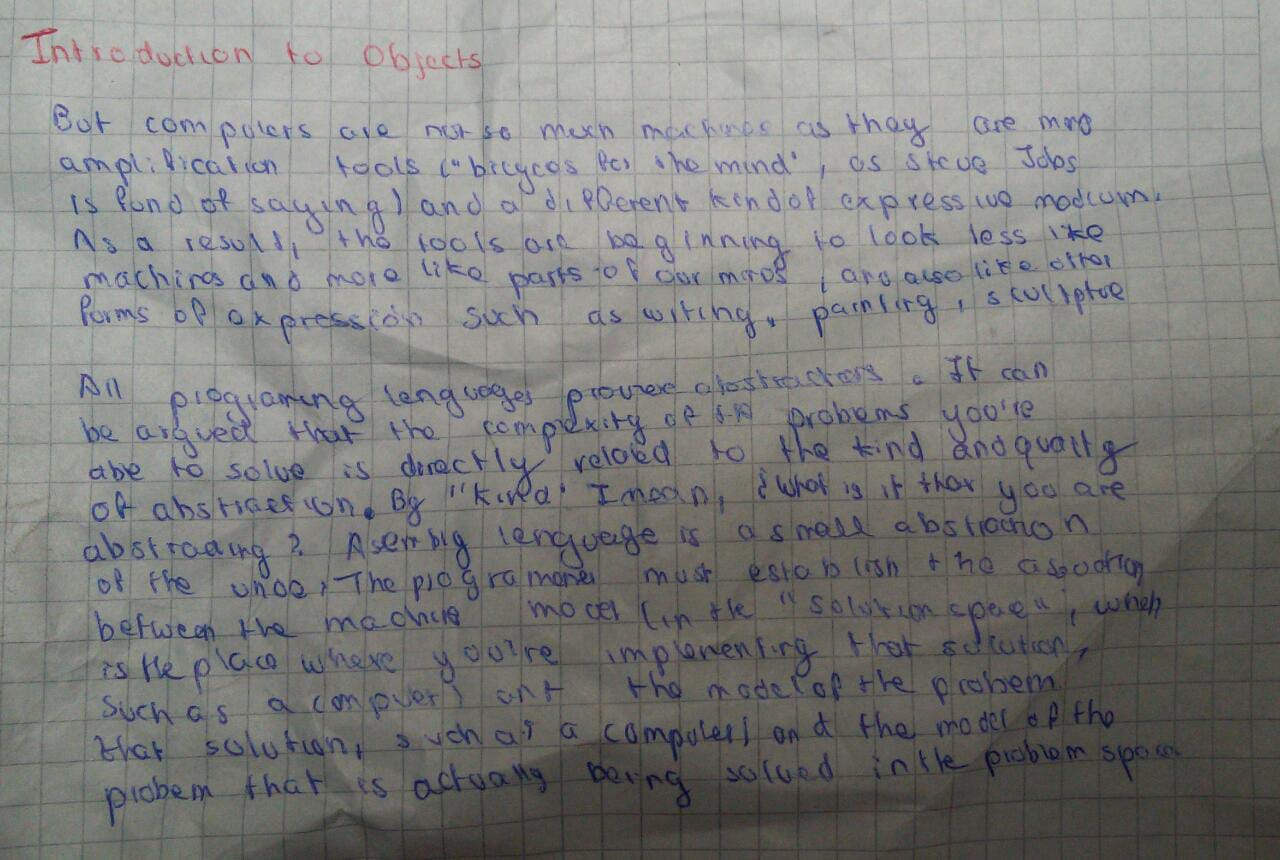 Introduction to Objects
But computers are not so much machines as they are mro
amplification tools ("bicycos for the mind", as steve Jobs
is fond of saying) and a different kind of expressive modium.
As a result, the tools are beginning to look less like
machines and more like parts of our minds, and also like other
forms of expression such as writing, painting, sculptue
All programing languages provide abstractions. It can
be argued that the complexity of the probems you're
abe to solve is directly related to the kind and quality
of abstraction. By "kind" I mean, ¿what is it that you are
abstracting? Asembly language is a small abstraction
of the The programmer must establish the association
between the machine model (in the "solution space", which
is the place where you're implementing that solution,
such as a computer) ant the model of the probem
that solution, such as a computer) and the model of the
probem that is actually being solved in the problem space